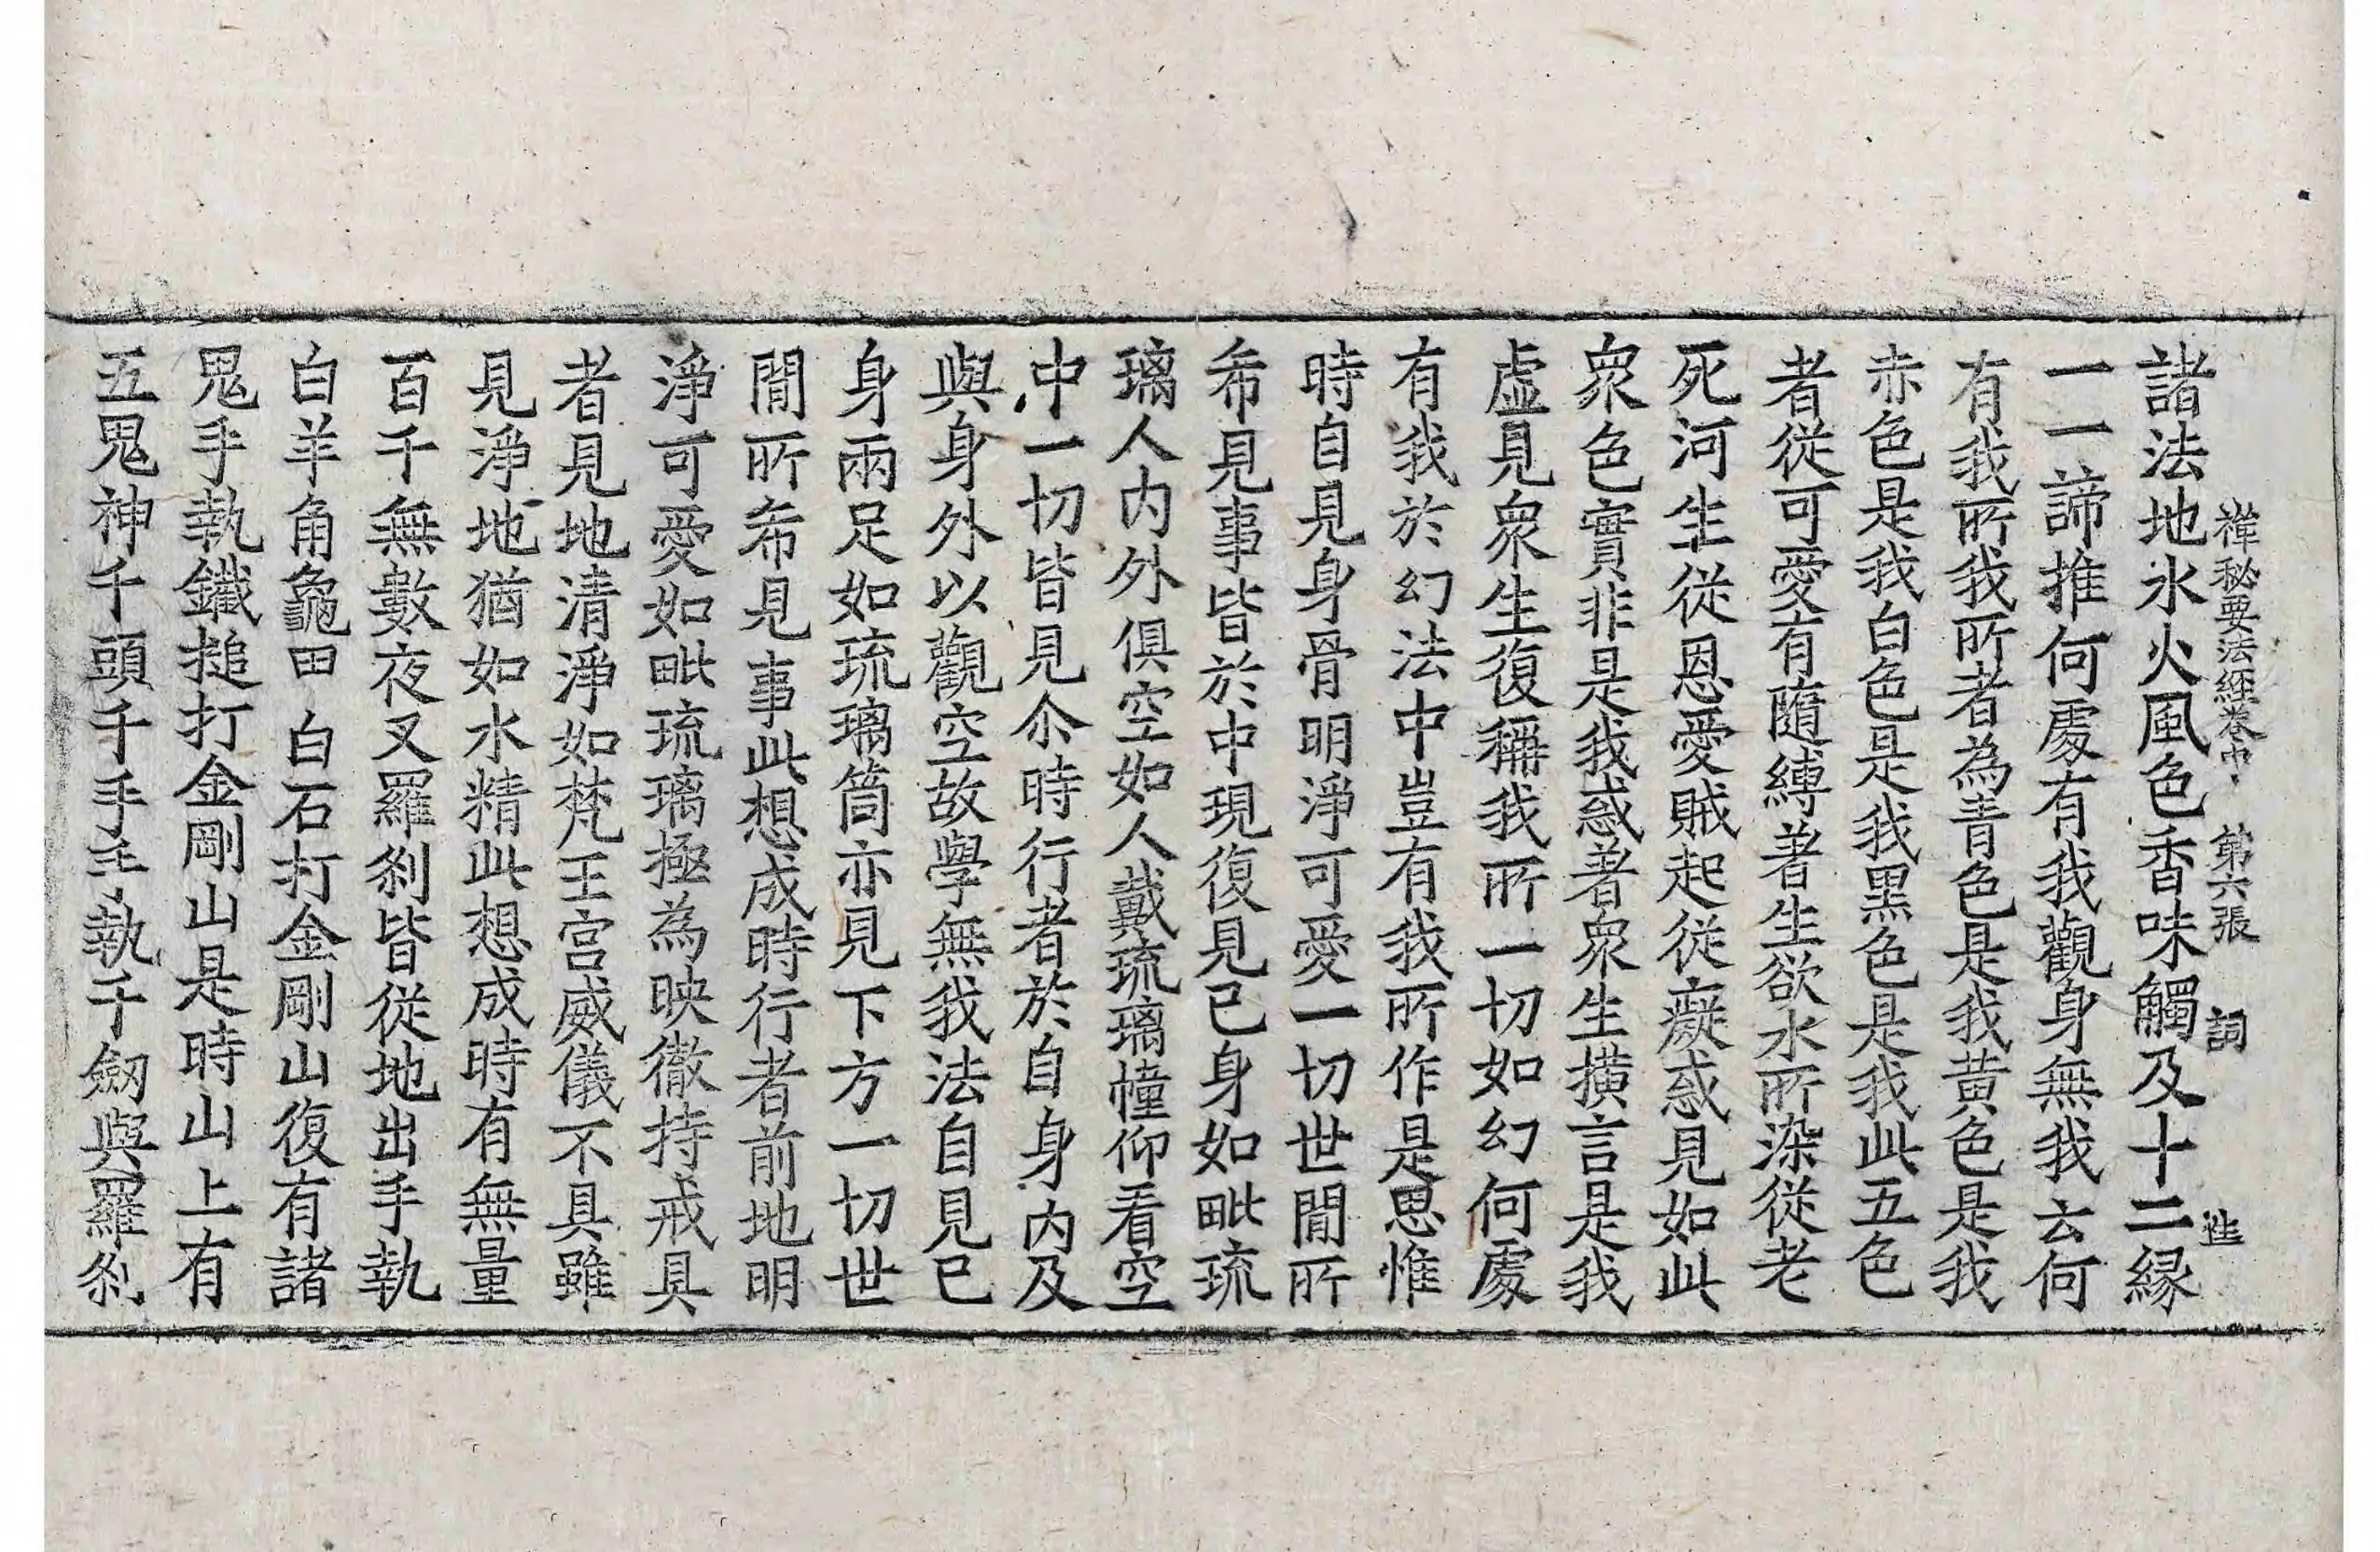 禪秘要法經卷中 第六張 詞 進
諸法地水火風色香味觸及十二緣
一一諦推何處有我觀身無我云何
有我所我所者為青色是我黃色是我
赤色是我白色是我黑色是我此五色
者從可愛有隨縛著生欲水所染從老
死河生從恩愛賊起從癡惑見如此
衆色實非是我惑著衆生橫言是我
虛見衆生復稱我所一切如幻何處
有我於幻法中豈有我所作是思惟
時自見身骨明淨可愛一切世閒所
希見事皆於中現復見已身如毗琉
璃人内外俱空如人戴琉璃幢仰看空
中一切皆見尒時行者於自身内及
與身外以觀空故學無我法自見已
身兩足如琉璃筒亦見下方一切世
閒所希見事此想成時行者前地明
淨可愛如毗琉璃極為映徹持戒具
者見地清淨如梵王宮威儀不具雖
見淨地猶如水精此想成時有無量
百千無數夜叉羅剎皆從地出手執
白羊角龜甲白石打金剛山復有諸
鬼手執鐵搥打金剛山是時山上有
五鬼神千頭千手手執千劒與羅剎